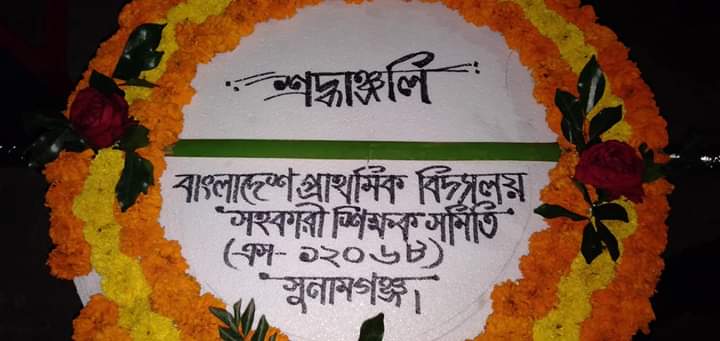 শ্রদ্ধাঞ্জলি
বাংলাদেশ প্রাথমিক বিদ্যালয়
সহকারী শিক্ষক সমিতি
(এস- ১২০৬৮)
সুনামগঞ্জ।